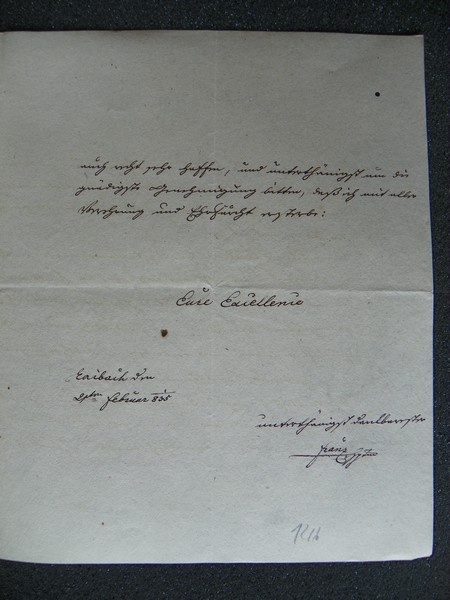 auch recht sehr hoffen, und unterthänigst um die
gnädigste Genehmigung bitten, daß ich mit aller
Verehrung und Ehrfurcht ersterbe:
Eure Excellenz
Laibach den
Februar 835
unterthänigst dankbarster
Franz